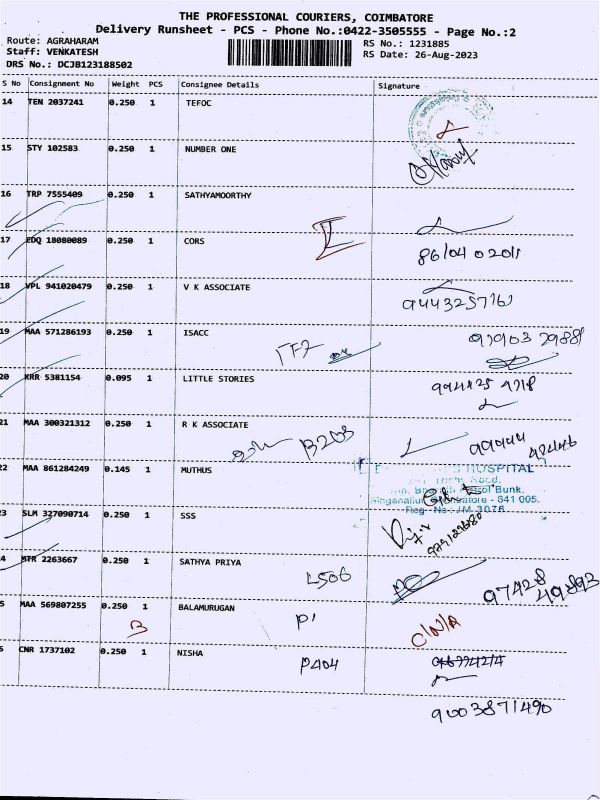 THE PROFESSIONAL COURIERS, COIMBATORE
Delivery Runsheet - PCS - Phone No.:0422-3505555 - Page No.:2
Route: AGRAHARAM
Staff: VENKATESH
DRS No.: DCJB123188502
RS No.: 1231885
RS Date: 26-Aug-2023
S No Consignment No Weight PCS Consignee Details Signature
14 TEN 2037241 0.250 1 TEFOC
15 STY 102583 0.250 1 NUMBER ONE
16 TRP 7555409 0.250 1 SATHYAMOORTHY
17 EDQ 18080089 0.250 1 CORS
8610402011
18 VPL 941020479 0.250 1 V K ASSOCIATE
9443257761
19 MAA 571286193 0.250 1 ISACC
20 KRR 5381154 0.095 1 LITTLE STORIES
21 MAA 300321312 0.250 1 R K ASSOCIATE
B203
22 MAA 861284249 0.145 1 MUTHUS
HOSPITAL
Bunk,
641 005.
3076
3 SLM 327090714 0.250 1 SSS
4 MTR 2263667 0.250 1 SATHYA PRIYA
L506
97428
49893
5 MAA 569807255 0.250 1 BALAMURUGAN
B
P1
C/N/A
6 CNR 1737102 0.250 1 NISHA
P404
9003871490